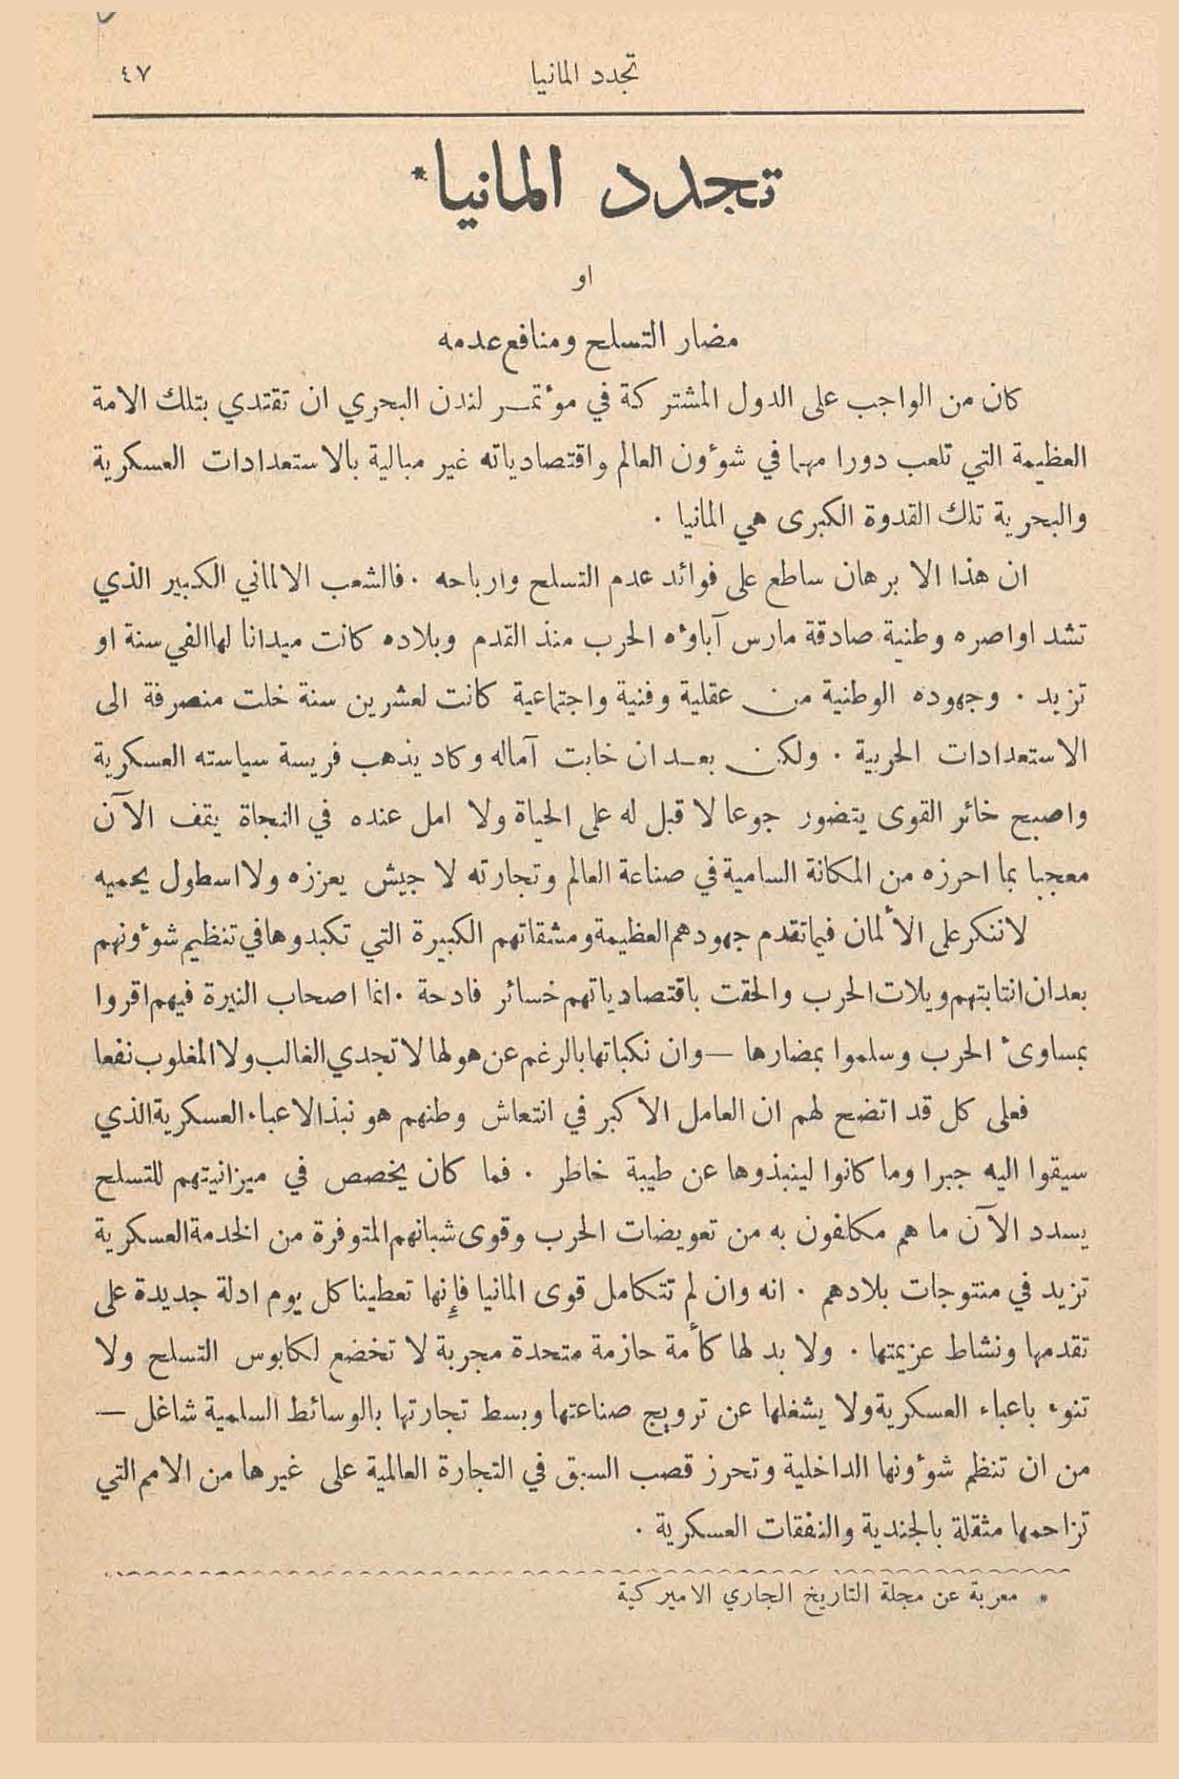 تجدد المانيا ٤٧
تجدد المانيا*
او
مضار التسلح ومنافع عدمه
كان من الواجب على الدول المشتركة في مؤتمر لندن البحري ان تقتدي بتلك الامة
العظيمة التي تلعب دورا مهما في شؤون العالم واقتصادياته غير مبالية بالاستعدادات العسكرية
والبحرية تلك القدوة الكبرى هي المانيا .
ان هذا الا برهان ساطع على فوائد عدم التسلح وارباحه . فالشعب الالماني الكبير الذي
تشد اواصره وطنية صادقة مارس آباؤه الحرب منذ القدم وبلاده كانت ميدانا لها الفي سنة او
تزيد . وجهوده الوطنية من عقلية وفنية واجتماعية كانت لعشرين سنة خلت منصرفة الى
الاستعدادات الحربية . ولكن بعد ان خابت آماله وكاد يذهب فريسة سياسته العسكرية
واصبح خائر القوى يتضور جوعا لا قبل له على الحياة ولا امل عنده في النجاة يقف الآن
معجبا بما احرزه من المكانة السامية في صناعة العالم وتجارته لا جيش يعززه ولا اسطول يحميه
لا ننكر على الألمان فيما تقدم جهودهم العظيمة ومشقاتهم الكبيرة التي تكبدوها في تنظيم شؤونهم
بعد ان انتابتهم ويلات الحرب والحقت باقتصادياتهم خسائر فادحة . انما اصحاب النيرة فيهم اقروا
بمساوئ الحرب وسلموا بمضارها — وان نكباتها بالرغم عن هولها لا تجدي الغالب ولا المغلوب نفعا
فعلى كل قد اتضح لهم ان العامل الاكبر في انتعاش وطنهم هو نبذ الاعباء العسكرية الذي
سيقوا اليه جبرا وما كانوا لينبذوها عن طيبة خاطر . فما كان يخصص في ميزانيتهم للتسلح
يسدد الآن ما هم مكلفون به من تعويضات الحرب وقوى شبانهم المتوفرة من الخدمة العسكرية
تزيد في منتوجات بلادهم . انه وان لم تتكامل قوى المانيا فإنها تعطينا كل يوم ادلة جديدة على
تقدمها ونشاط عزيمتها . ولا بد لها كأمة حازمة متحدة مجربة لا تخضع لكابوس التسلح ولا
تنوء باعباء العسكرية ولا يشغلها عن ترويج صناعتها وبسط تجارتها بالوسائط السلمية شاغل —
من ان تنظم شؤونها الداخلية وتحرز قصب السبق في التجارة العالمية على غيرها من الامم التي
تزاحمها مثقلة بالجندية والنفقات العسكرية .
* معربة عن مجلة التاريخ الجاري الاميركية